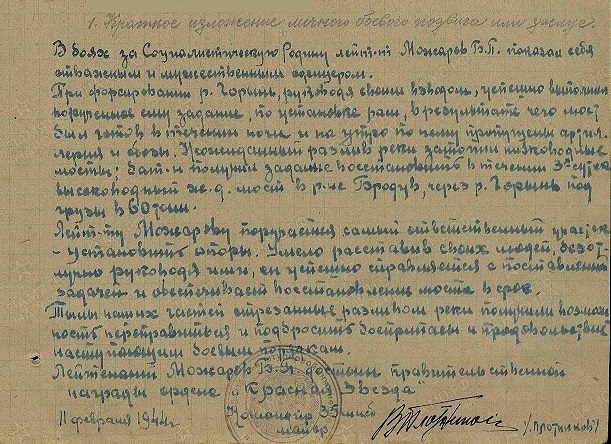 1. Краткое изложение личного боевого подвига или заслуг.
В боях за Социалистическую Родину лейт-нт Можаров В.П. показал себя
отважным и мужественным офицером.
При форсировании р. Горынь, руководя своим взводом, успешно выполнил
порученное ему задание, по установке рам, в результате чего мост
был готов в течении ночи и на утро по нему пропущены артил-
лерия и обозы. Неожиданный разлив реки затопил низководные
мосты; Бат-н получил задание восстановить в течении 3х суток
высоководный ж.д. мост в р-не Бродув, через р. Горынь под
грузы в 60 тонн.
Лейт-ту Можарову поручается самый ответственный участок
- установить опоры. Умело расставив своих людей, безот-
лучно руководя ими, он успешно справляется с поставленной
задачей и обеспечивает восстановление моста в срок.
Тылы наших частей отрезанные разливом реки получили возмож-
ность переправиться и подбросить боеприпасы и продовольствие
наступающим боевым порядкам.
Лейтенант Можаров В.П. достоин правительственной
награды ордена "Красная Звезда"
Командир 35
майор
/Плотников/
11 февраля 1944г